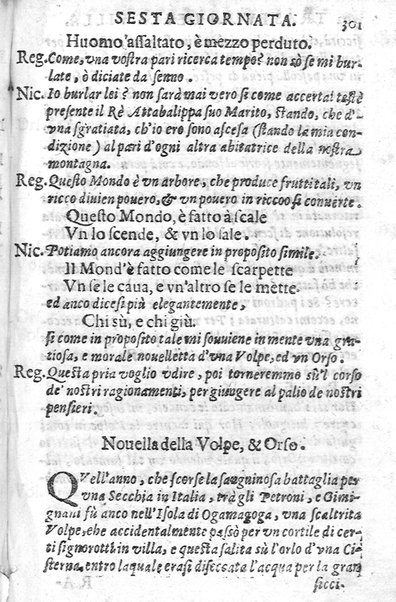 SESTA GIORNATA. 301
Huomo'assaltato, è mezzo perduto.
Reg. Come, vna vostra pari ricerca tempo? non sò se mi bur-
late, ò diciate da senno.
Nic. Io burlar lei? non sarà mai vero si come accertai testè
presente il Rè Attabalippa suo Marito, stando, che d'
vna sgratiata, ch'io ero sono ascesa (stando la mia con-
dizione) al pari d'ogni altra abitatrice della nostra
montagna.
Reg. Questo Mondo è vn arbore, che produce frutti tali, vn
ricco diuien pouero, & vn pouero in ricco si conuerte.
Questo Mondo, è fatto à scale
Vn lo scende, & vn lo sale.
Nic. Potiamo ancora aggiungere in proposito simile.
Il Mond'è fatto come le scarpette
Vn se le caua, e vn'altro se le mette.
ed anco dicesi più elegantemente,
Chi sù, e chi giù.
si come in proposito tale mi souuiene in mente vna gra-
tiosa, e morale nouelletta d'vna Volpe, ed vn Orso.
Reg. Questa pria voglio vdire, poi torneremmo sù'l corso
de' nostri ragionamenti, per giugere al palio de nostri
pensieri.
Nouella della Volpe, & Orso.
QVell'anno, che scorse la sanguinosa battaglia per
vna Secchia in Italia, trà gli Petroni, e Gimi-
gnani fù anco nell'Isola di Ogamagoga, vna scaltrita
Volpe, che accidentalmente passò per vn cortile di cer-
ti signorotti in villa, e questa salita sù l'orlo d'vna Ci-
sterna, entro laquale erasi diseccata l'acqua per la gran
sicci-